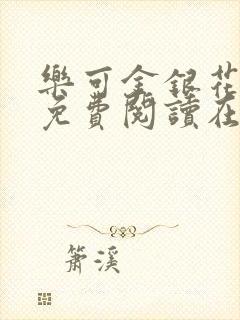 樂可金銀花
免費閱讀在
簫溪